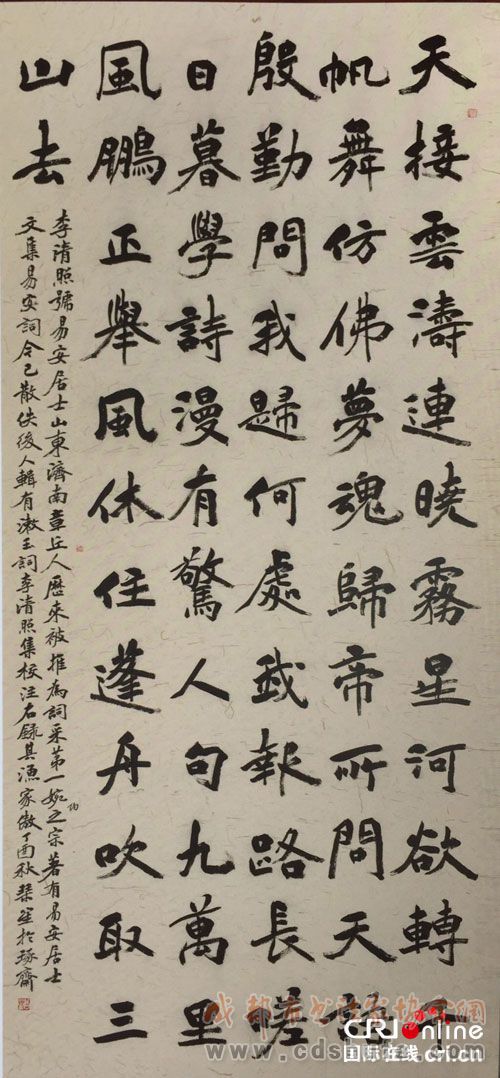 天接雲濤連曉霧星河欲轉千
帆舞仿佛夢魂歸帝所聞天語
殷勤問我歸何處我報路長嗟
日暮學詩漫有驚人句九萬里
風鵬正舉風休住蓬舟吹取三
山去
李清照號易安居士山東濟南章丘人歷來被推為詞采第一婉約之宗著有易安居士
文集易安詞今已散佚後人輯有漱玉詞李清照集校注右錄其漁家傲丁酉秋於琢齋
CRI online
国际在线 cri.cn